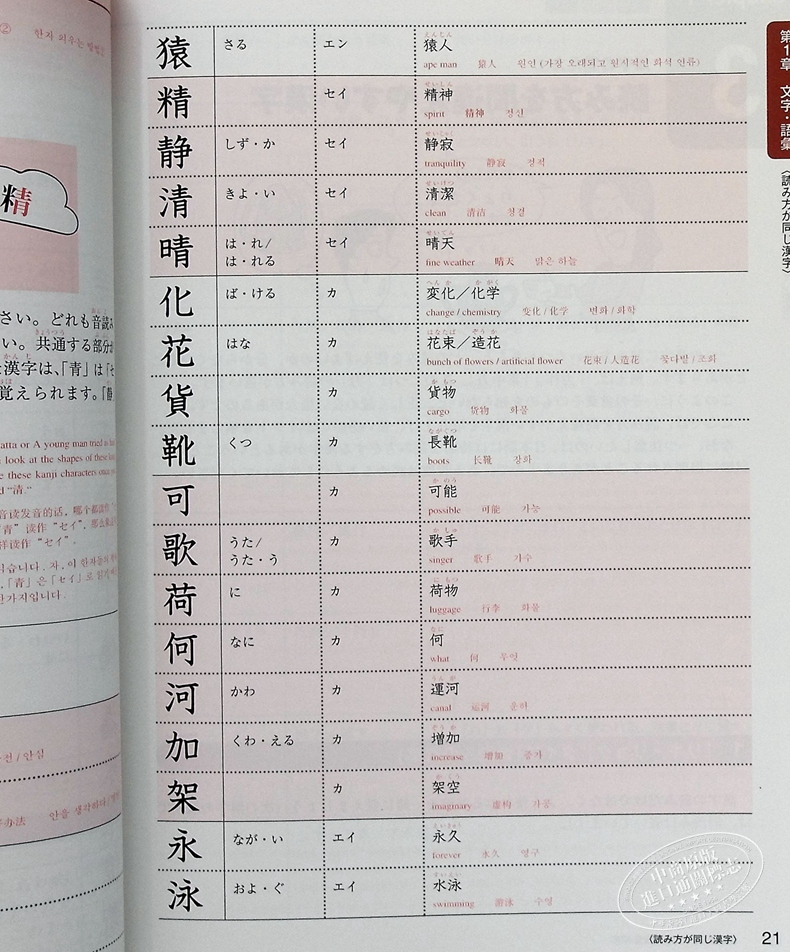 ②
한자 외우는 방법은
精
さい。どれも音読み
い。共通する部分が
漢字は、「青」は「セ
覚えられます。「静
atta or A young man tried as
look at the shapes of these
e these kanji characters once
d “清.”
音读发音的话，哪个都读作
“青”读作“セイ”，那么
样读作“セイ”。
「青」은「セイ」로
한가지입니다.
안심
办法 안을 생각하다
猿 さる エン 猿人
えんじん
ape man 猿人 원인 (가장 오래되고 원시적인 화석 인류)
精 セイ 精神
せいしん
spirit 精神 정신
静 しず・か セイ 静寂
せいじゃく
tranquility 静寂 정적
清 きよ・い セイ 清潔
せいけつ
clean 清洁 청결
晴 は・れ/ セイ 晴天
は・れる
せいてん
fine weather 晴天 맑은 하늘
化 ば・ける カ 変化／化学
へんか かがく
change / chemistry 变化 / 化学 변화 / 화학
花 はな カ 花束／造花
はなたば ぞうか
bunch of flowers / artificial flower 花束 / 人造花 꽃다발 / 조화
貨 カ 貨物
かもつ
cargo 货物 화물
靴 くつ カ 長靴
ながぐつ
boots 长靴 장화
可 カ 可能
かのう
possible 可能 가능
歌 うた/ カ 歌手
うた・う
かしゅ
singer 歌手 가수
荷 に カ 荷物
にもつ
luggage 行李 화물
何 なに カ 何
なに
what 何 무엇
河 かわ カ 運河
うんが
canal 运河 운하
加 くわ・える カ 増加
ぞうか
increase 增加 증가
架 カ 架空
かくう
imaginary 虚构 가공
永 なが・い エイ 永久
えいきゅう
forever 永久 영구
泳 およ・ぐ エイ 水泳
すいえい
swimming 游泳 수영
第1章 文字・語彙
〈読み方が同じ漢字〉
〈読み方が同じ漢字〉 21
中商原版
進口通關標志